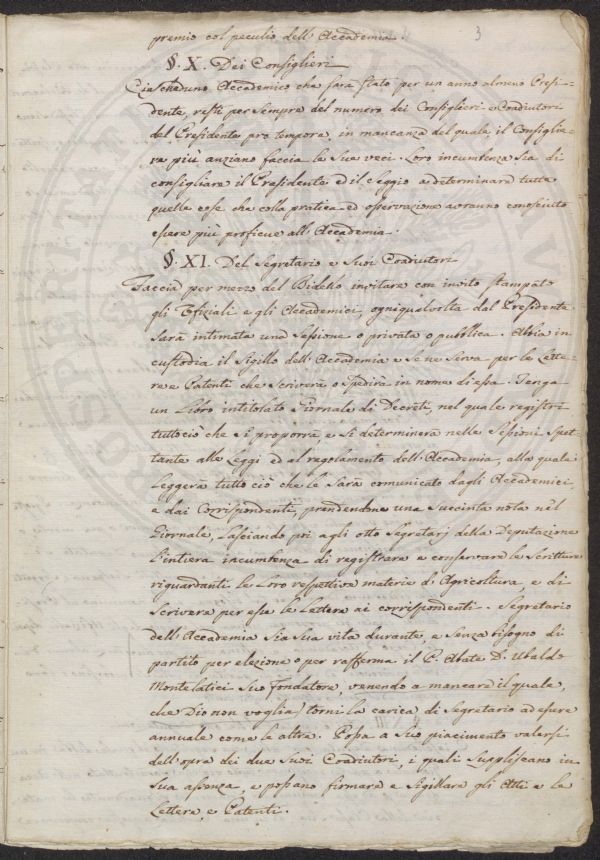 3
premio col peculio dell'Accademia.
§. X. Dei Consiglieri
Ciascheduno Accademico che sarà stato per un anno almeno Presi-
dente, resti per sempre del numero dei Consiglieri e Coadiutori
del Presidente pro tempore, in mancanza del quale il Consiglie-
re più anziano faccia le sue veci. Loro incumbenza sia di
consigliare il Presidente ed il Seggio a determinare tutte
quelle cose che colla pratica ed osservazione avranno conosciuto
essere più proficue all'Accademia.
§. XI. Del Segretario e Suoi Coadiutori
Faccia per mezzo del Bidello invitare con invito stampato
gli Ufiziali e gli Accademici, ogni qualvolta dal Presidente
sarà intimata una Sessione o privata o pubblica. Abbia in
custodia il Sigillo dell'Accademia e se ne serva per le Lette-
re e Patenti che scriverà o spedirà in nome di essa. Tenga
un Libro intitolato Giornale di Decreti, nel quale registri
tutto ciò che si proporrà, e si determinerà nelle Sessioni spet-
tante alle Leggi ed al regolamento dell'Accademia, alla quale
leggerà tutto ciò che le sarà comunicato dagli Accademici,
e dai Corrispondenti, prendendone una succinta nota nel
Giornale, lasciando poi agli otto Segretarj della Deputazione
l'intiera incumbenza di registrare e conservare le Scritture
riguardanti le loro respettive materie d'Agricoltura, e di
scrivere per esse le Lettere ai corrispondenti. Segretario
dell'Accademia sia sua vita durante, e senza bisogno di
partito per elezione o per rafferma il P. Abate D. Ubaldo
Montelatici suo fondatore, venendo a mancare il quale,
che Dio non voglia) torni la carica di Segretario ad essere
annuale come le altre. Possa a suo piacimento valersi
dell'opra dei due suoi Coadiutori, i quali supplischano in
sua assenza, e possano firmare e sigillare gli Atti e le
Lettere, e Patenti.
PROSPERITATI